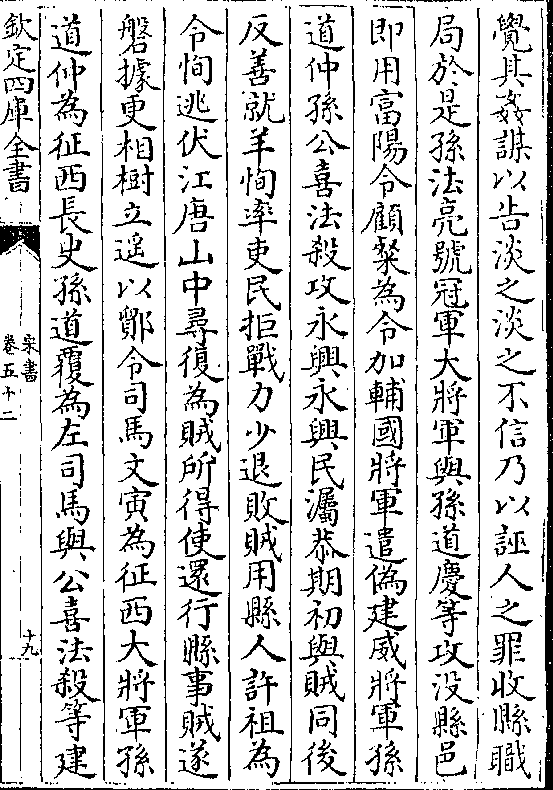 覺其姦謀以告淡之淡之不信乃以誣人之罪收縣職
局於是孫法亮號冠軍大將軍與孫道慶等攻没縣邑
即用富陽令顧粲為令加輔國將軍遣偽建威將軍孫
道仲孫公喜法殺攻永興永興民灟恭期初與賊同後
反善就羊恂率吏民拒戰力少退敗賊用縣人許祖為
令恂逃伏江唐山中尋復為賊所得使還行縣事賊遂
磐據更相樹立遥以鄮令司馬文寅為征西大將軍孫
道仲為征西長史孫道覆為左司馬與公喜法殺等建
欽定四庫全書
宋書
卷五十二
十九